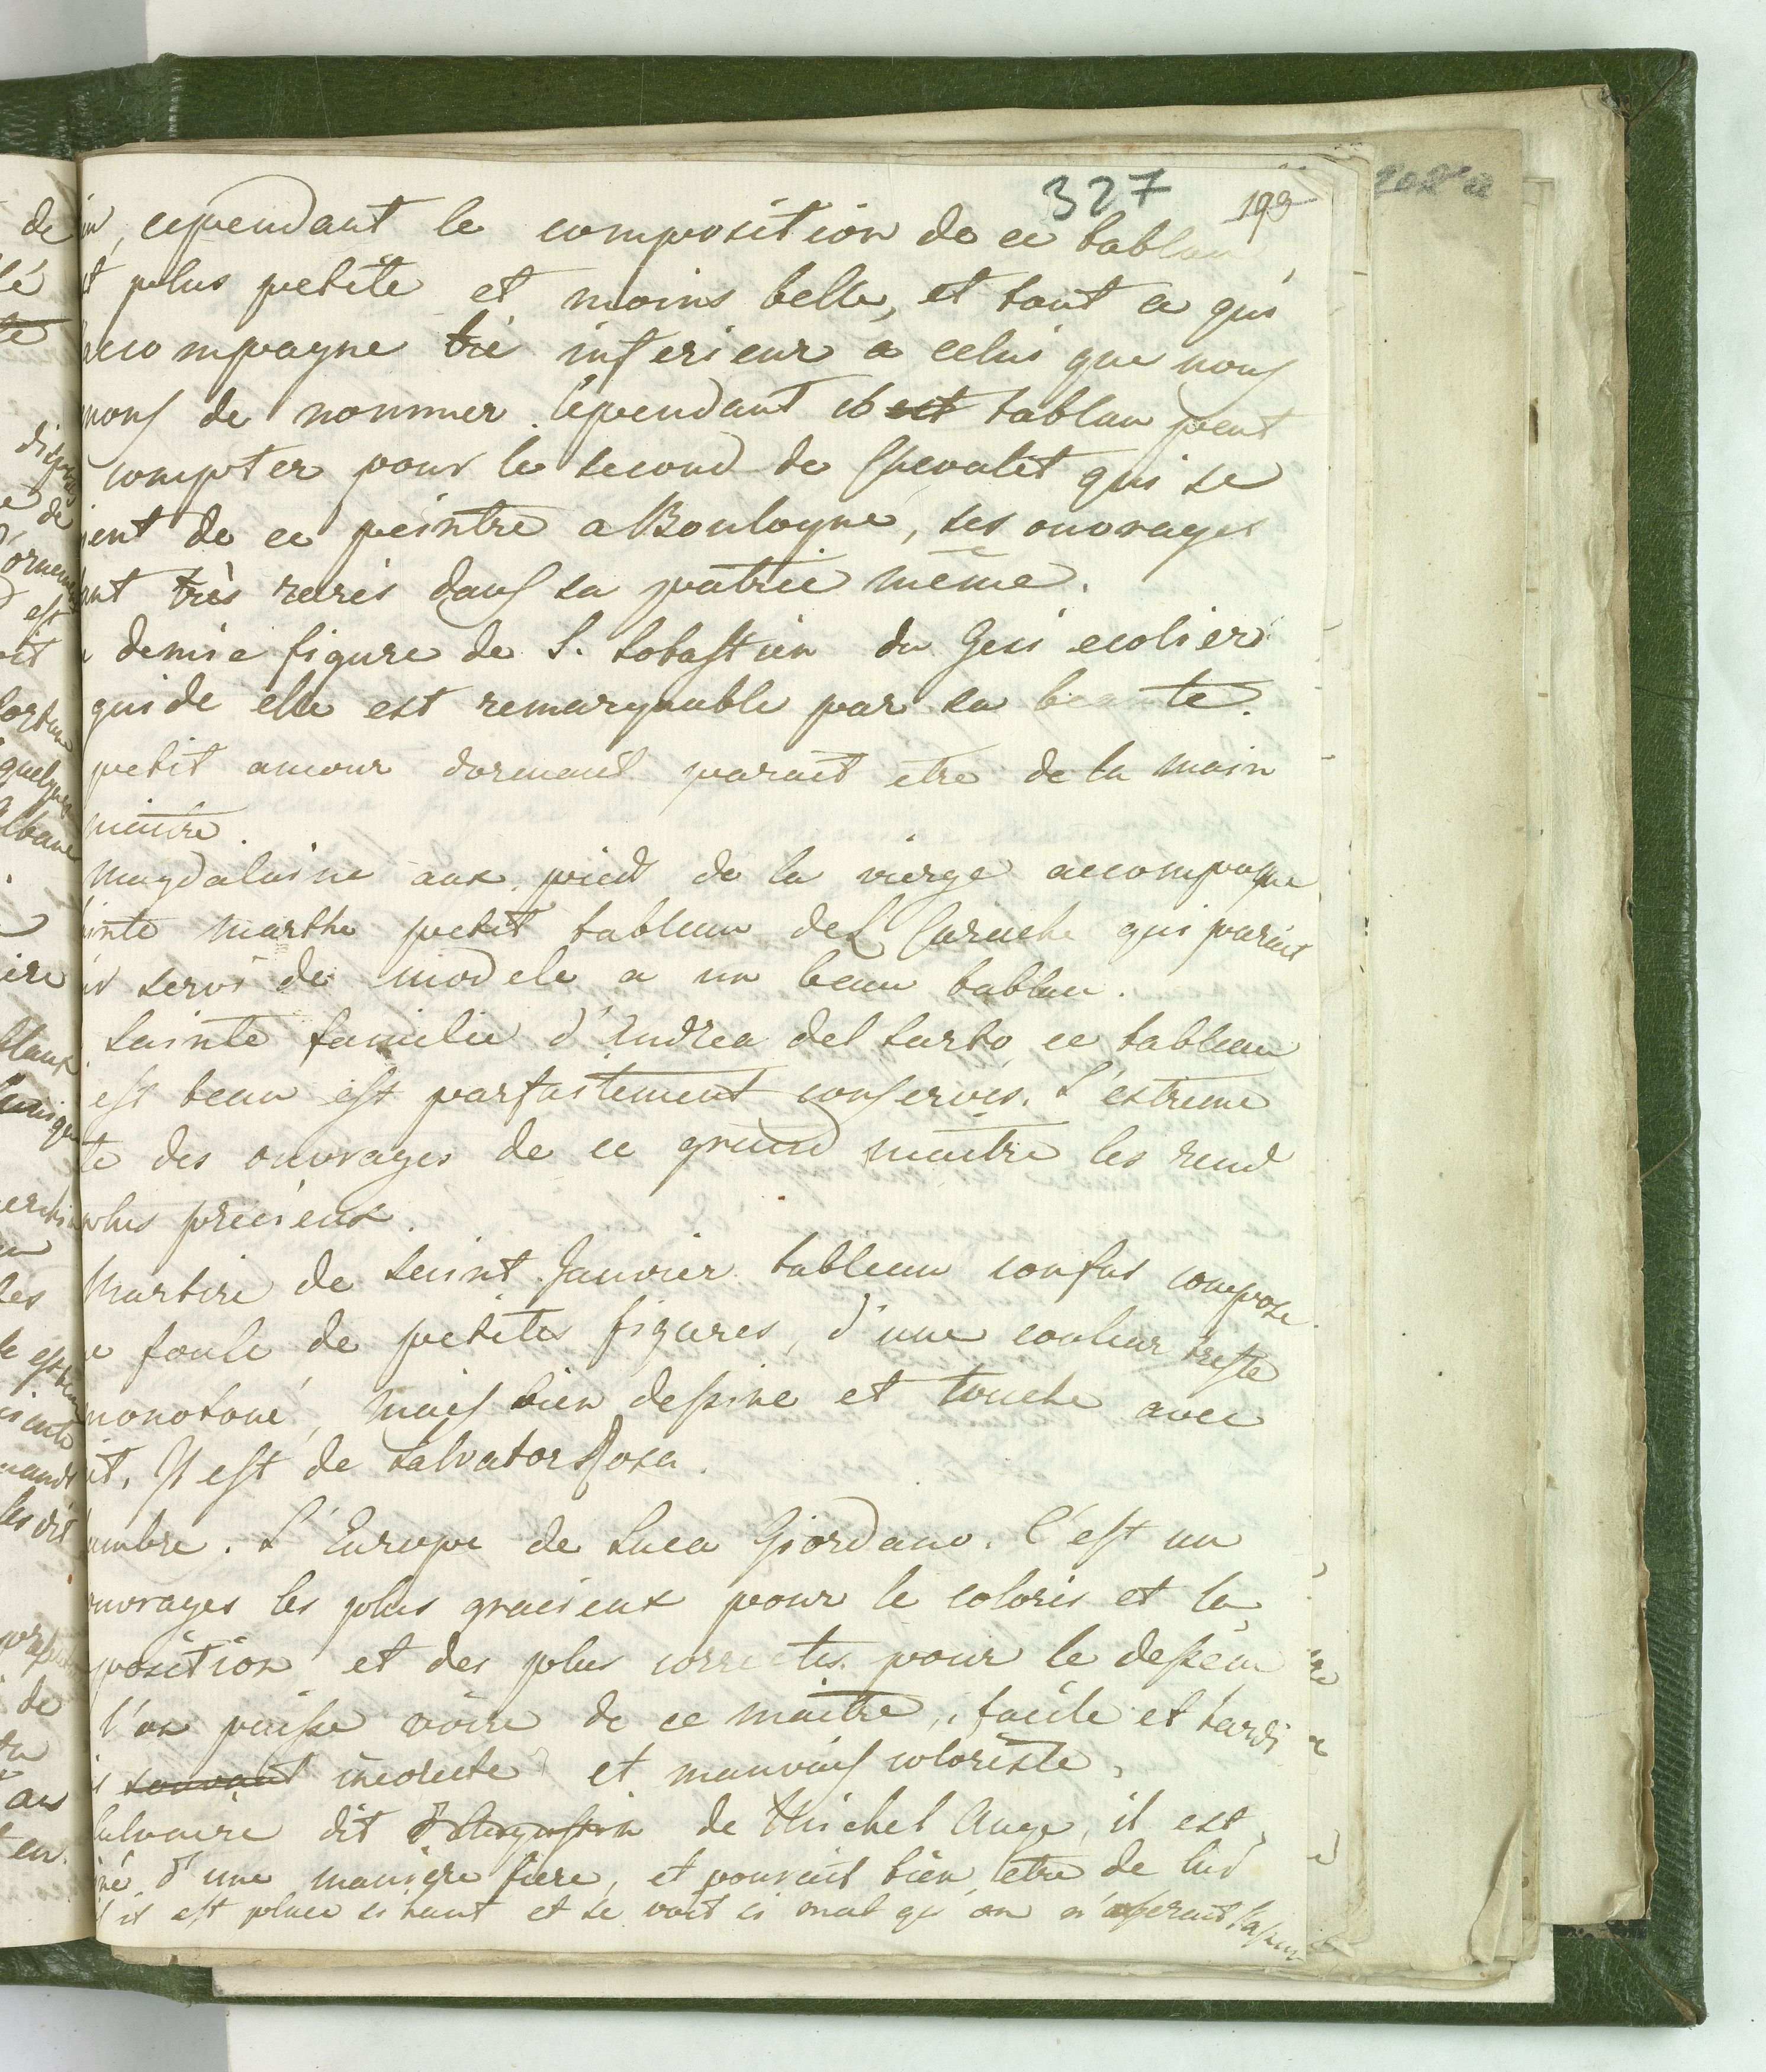 327 193
in, cependant le composition de ce tableau,
t plus petite et moins belle, et tout ce qui
accompagne très inferieur a celui que nous
nons de nommer. Cependant ce tableau peut
compter pour le second de Chevalet qui se
ient de ce peintre a Boulogne, ses ouvrages
ant très rares dans sa patrie même.
demie figure de S. Sebastien du Gesi ecolier
guide elle est remarquable par sa beaute.
petit amour dormant parait etre de la main
maitre.
Magdalaine aux pied de la vierge accompagne
inte Marthe petit tableau de L Carache qui parait
ir servi de modele a un beau tableau.
Sainte familie d'Andrea del Sarto, ce tableau
est beau est parfaitement conservés. L'extreme
te des ouvrages de ce grand maitre les rend
plus precieux.
Martire de saint Janvier tableau confus compose
e foule de petites figures, d'une couleur triste
monotone, mais bien dessine et touche avec
it, Il est de Salvator Rosa.
ambre. L'Europe de Luca Giordano. C'est un
ouvrages les plus gracieux pour le coloris et la
position et des plus correctes pour le dessein
l'on puisse voire de ce maitre, facile et hardi
s souvant incorecte et mauvais coloriste,
Calvaire dit de Michel Ange, il est
né d'une maniere fiere, et pourait bien etre de lui
s il est place si haut et se voit si mal qu'on n'oserait